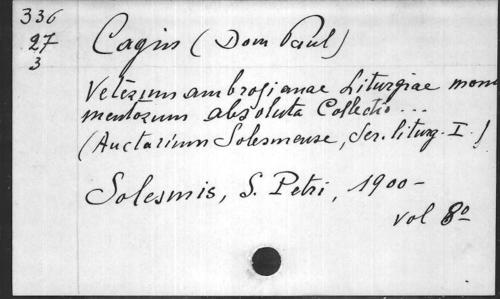 336
27
3
Cagin (Dom Paul)
Veterum ambrosianae Liturgiae monu
mentorum absoluta Collectio...
(Auctarium Solesmense, Ser. liturg. I.)
Solesmis, S. Petri, 1900-
vol 8º